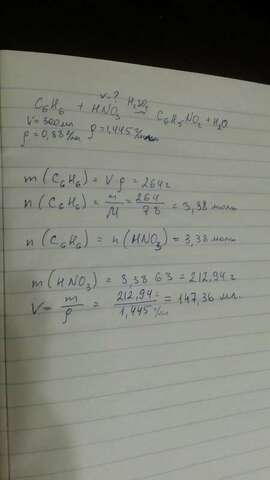 V-?
C₆H₆ + HNO₃ H₂SO₄→ C₆H₅NO₂ + H₂O
V=300мл
ρ=0,88г/мл ρ=1,445г/мл
m(C₆H₆) = Vρ = 264г
n(C₆H₆) = m/M = 264/78 = 3,38 моль
n(C₆H₆) = n(HNO₃) = 3,38 моль
m(HNO₃) = 3,38 63 = 212,94 г
V = m/ρ = 212,94г/1,445г/мл = 147,36 мл.